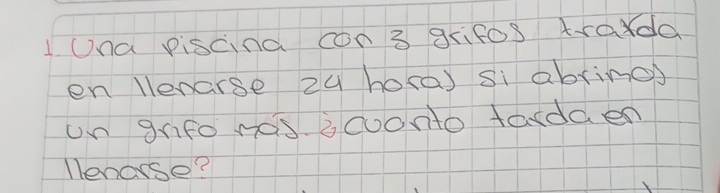 1. Una piscina con 3 grifos tarda
en llenarse 24 horas si abrimos
un grifo más. ¿cuanto tarda en
llenarse?